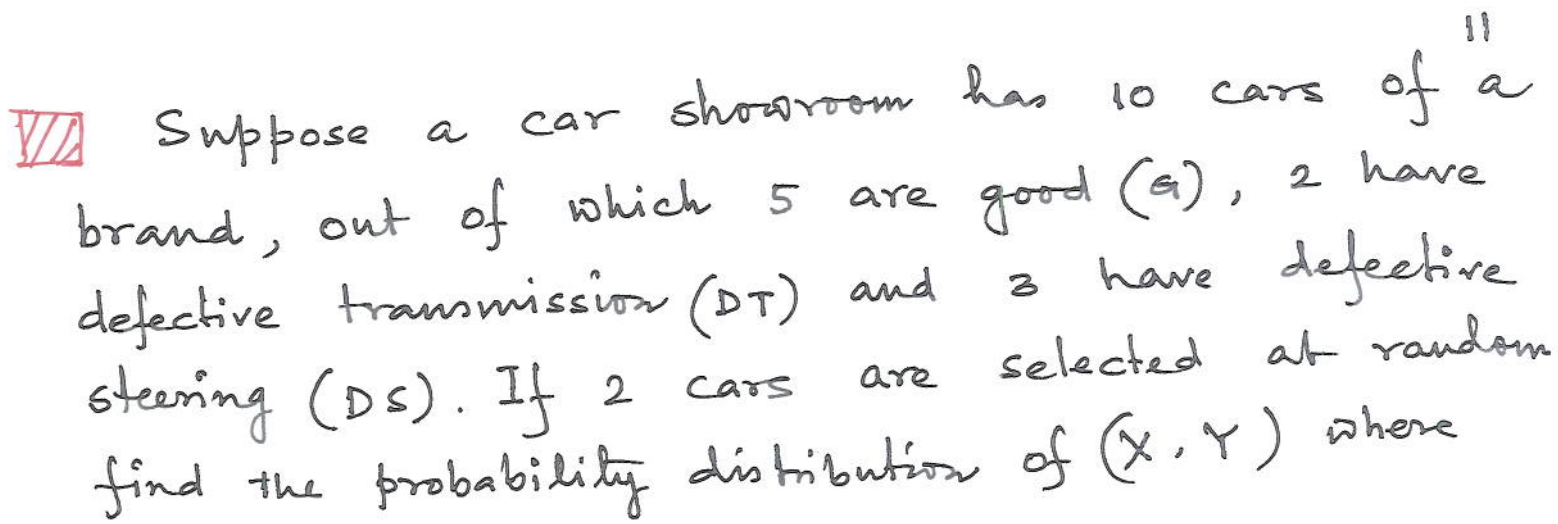 11
Suppose a car showroom has 10 cars of a
brand, out of which 5 are good (G), 2 have
defective transmission (DT) and 3 have defective
steering (DS). If 2 cars are selected at random
find the probability distribution of (X, Y) where